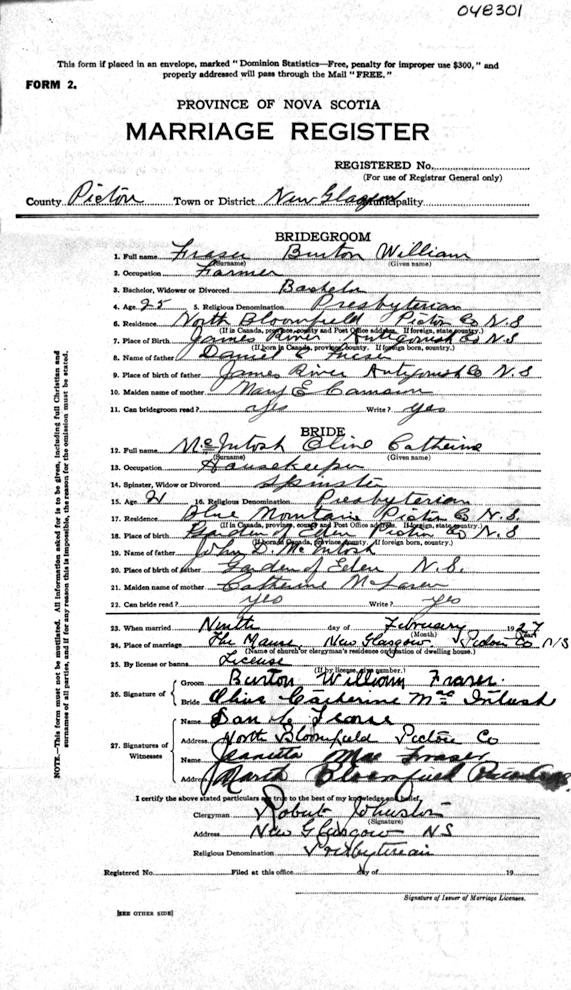 048301
This form if placed in an envelope, marked "Dominion Statistics—Free, penalty for improper use $300," and
properly addressed will pass through the Mail "FREE."
FORM 2.
PROVINCE OF NOVA SCOTIA
MARRIAGE REGISTER
REGISTERED No.
(For use of Registrar General only)
County Pictou Town or District New Glasgow Municipality
BRIDEGROOM
1. Full name Fraser Burton William
(Surname) (Given name)
2. Occupation Farmer
3. Bachelor, Widower or Divorced Bachelor
4. Age 25 5. Religious Denomination Presbyterian
6. Residence North Bloomfield Pictou Co N.S
(If in Canada, province, county and Post Office address. If foreign, state country.)
7. Place of Birth James River Antigonish Co N.S
(If born in Canada, province, county. If foreign born, country.)
8. Name of father Daniel Fraser
9. Place of birth of father James River Antigonish Co N.S
10. Maiden name of mother Mary E Cameron
11. Can bridegroom read? Yes Write? Yes
BRIDE
12. Full name McIntosh Olive Catherine
(Surname) (Given name)
13. Occupation Housekeeper
14. Spinster, Widow or Divorced Spinster
15. Age 21 16. Religious Denomination Presbyterian
17. Residence Blue Mountain Pictou Co N.S.
(If in Canada, province, county and Post Office address. If foreign, state country.)
18. Place of Birth Garden of Eden Pictou Co N.S
(If born in Canada, province, county. If foreign born, country.)
19. Name of father John D. McIntosh
20. Place of birth of father Garden of Eden N.S.
21. Maiden name of mother Catherine McLaren
22. Can bride read? Yes Write? Yes
23. When married Ninth day of February 1927
(Month) (Year)
24. Place of marriage The Manse, New Glasgow, Pictou Co N/S
(Name of church or clergyman's residence or location of dwelling house.)
25. By license or banns License
(If by license, give number.)
26. Signature of
Groom Burton William Fraser
Bride Olive Catherine MacIntosh
27. Signatures of Witnesses
Name Dan
Address North Bloomfield Pictou Co
Name Mae Fraser
Address North Bloomfield Pictou Co
I certify the above stated particulars are true to the best of my knowledge and belief.
Clergyman Robert Johnston
(Signature)
Address New Glasgow NS
Religious Denomination Presbyterian
Registered No. Filed at this office day of 19
Signature of Issuer of Marriage Licenses.
[SEE OTHER SIDE]
NOTE.—This form must not be mutilated. All information asked for is to be given, including full Christian and
surnames of all parties, and if for any reason this is impossible, the reason for the omission must be stated.